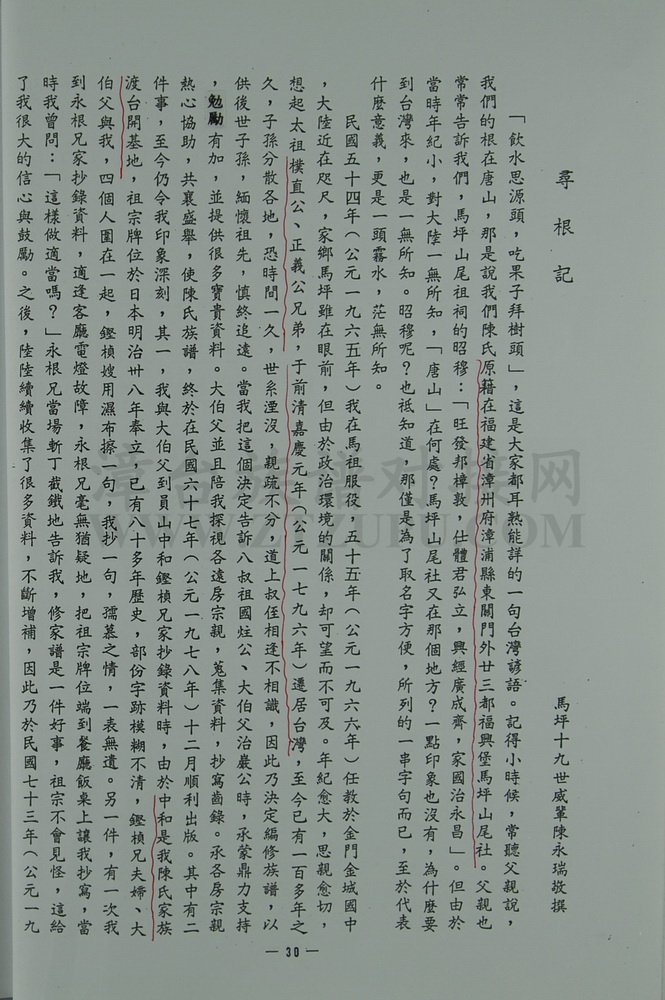 尋根記
馬坪十九世威輩陳永瑞敬撰
「飲水思源頭，吃果子拜樹頭」，這是大家都耳熟能詳的一句台灣諺語。記得小時候，常聽父親說，
我們的根在唐山，那是說我們陳氏原籍在福建省漳州府漳浦縣東關門外廿三都福興堡馬坪山尾社。父親也
常常告訴我們，馬坪山尾祖祠的昭穆：「旺發邦樟敦，仕體君弘立，興經廣成齊，家國治永昌」。但由於
當時年紀小，對大陸一無所知，「唐山」在何處？馬坪山尾社又在那個地方？一點印象也沒有，為什麼要
到台灣來，也是一無所知。昭穆呢？也祗知道，那僅是為了取名字方便，所列的一串字句而已，至於代表
什麼意義，更是一頭霧水，茫無所知。
民國五十四年（公元一九六五年）我在馬祖服役，五十五年（公元一九六六年）任教於金門金城國中
，大陸近在咫尺，家鄉馬坪雖在眼前，但由於政治環境的關係，却可望而不可及。年紀愈大，思親愈切，
想起太祖樸直公、正義公兄弟，于前清嘉慶元年（公元一七九六年）遷居台灣，至今已有一百多年之
久，子孫分散各地，恐時間一久，世系湮沒，親疏不分，道上叔侄相逢不相識，因此乃決定編修族譜，以
供後世子孫，緬懷祖先，慎終追遠。當我把這個決定告訴八叔祖國炷公、大伯父治嚴公時，承蒙鼎力支持
，勉勵有加，並提供很多寶貴資料。大伯父並且陪我探視各遠房宗親，蒐集資料，抄寫齒錄。承各房宗親
熱心協助，共襄盛舉，使陳氏族譜，終於在民國六十七年（公元一九七八年）十二月順利出版。其中有二
件事，至今仍令我印象深刻，其一，我與大伯父到員山中和鏗楨兄家抄錄資料時，由於中和是我陳氏家族
渡台開基地，祖宗牌位於日本明治卅八年奉立，已有八十多年歷史，部份字跡模糊不清，鏗楨兄夫婦、大
伯父與我，四個人圍在一起，鏗楨嫂用濕布擦一句，我抄一句，孺慕之情，一表無遺。另一件，有一次我
到永根兄家抄錄資料，適逢客廳電燈故障，永根兄毫無猶疑地，把祖宗牌位端到餐廳飯桌上讓我抄寫，當
時我曾問：「這樣做適當嗎？」永根兄當場斬丁截鐵地告訴我，修家譜是一件好事，祖宗不會見怪，這給
了我很大的信心與鼓勵。之後，陸陸續續收集了很多資料，不斷增補，因此乃於民國七十三年（公元一九
— 30 —